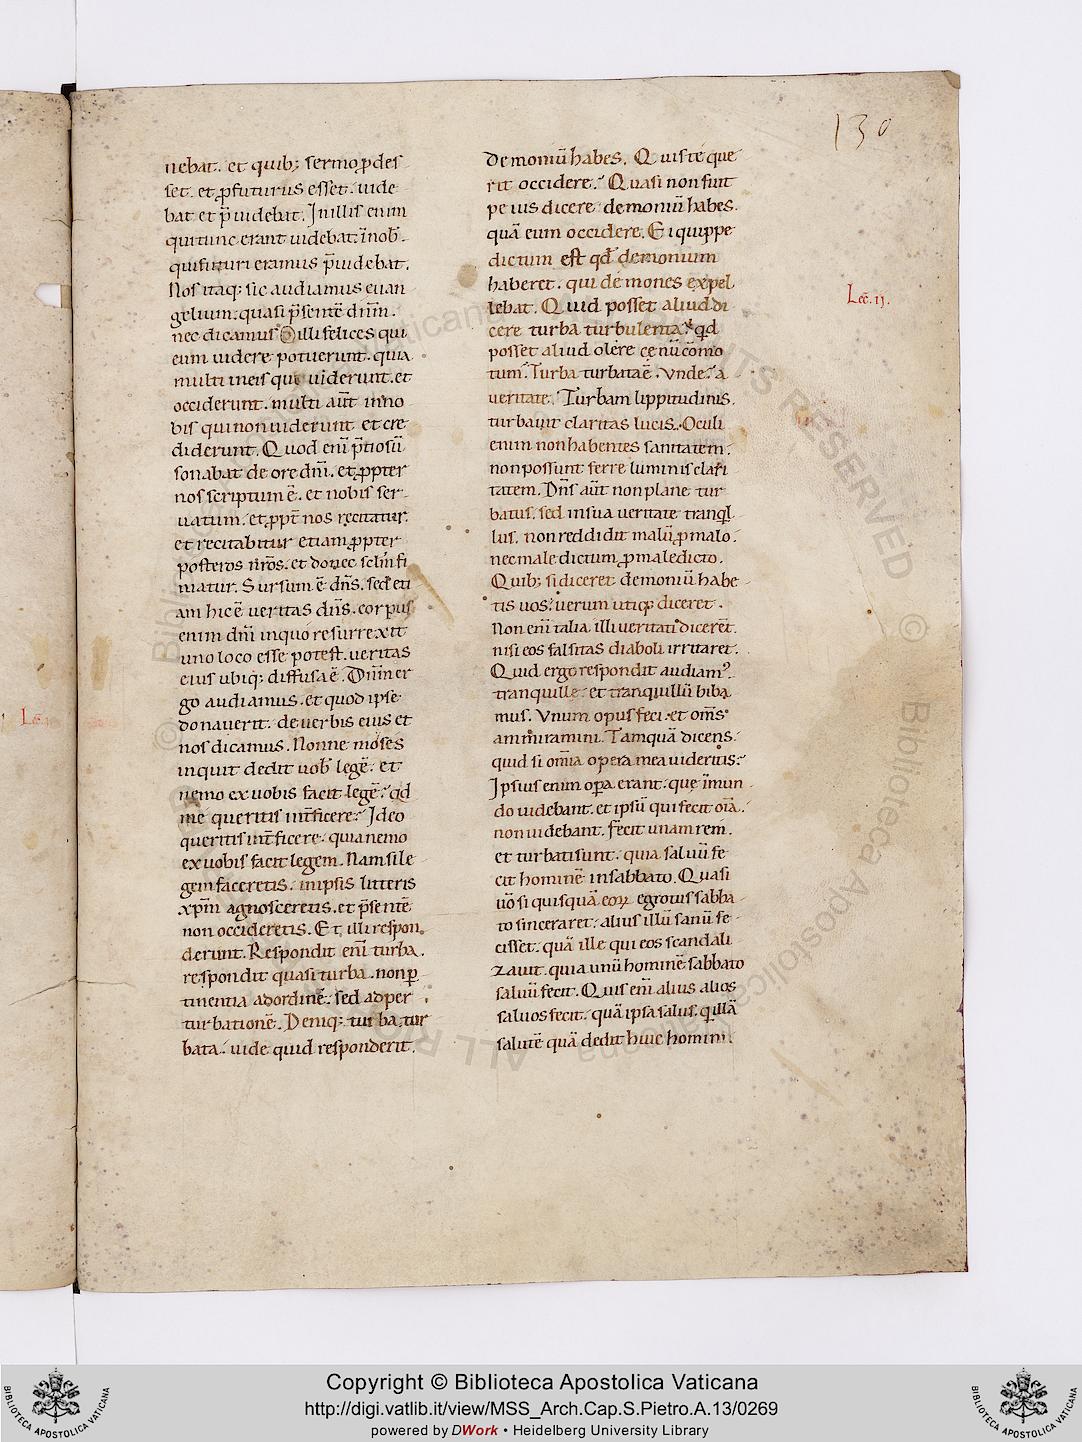 130
nebat. et quib; sermo ꝓdes
set. et ꝓfuturus esset. uide
bat et p̄uidebat. In illis enim
qui tunc erant uidebat. ī nob̄.
qui futuri eramus p̄uidebat.
Nos itaq; sic audiamus euan
gelium. quasi p̄sentē dn̄m.
nec dicamus O illi felices qui
eum uidere potuerunt. quia
multi in eis qui uiderunt. et
occiderunt. multi aūt in no
bis qui non uiderunt et cre
diderunt. Quod enī p̄tiosū
sonabat de ore dn̄i. et ꝓpter
nos scriptum ē. et nobis ser
uatum. et ꝓpt̄ nos recitatur.
et recitabitur etiam ꝓpter
posteros nr̄os. et donec sc̄lm fi
niatur. Sursum ē dn̄s. sed eti
am hic ē ueritas dn̄s. corpus
enim dn̄i in quo resurrexit
uno loco esse potest. ueritas
eius ubiq; diffusa ē. Dn̄m er
go audiamus. et quod ipse
donauerit. de uerbis eius et
nos dicamus. Nonne moses
inquit dedit uob̄ legē. et
nemo ex uobis facit legē. qd̄
me queritis int̄ficere. Ideo
queritis int̄ficere. quia nemo
ex uobis facit legem. Nam si le
gem faceretis. in ipsis litteris
xp̄m agnosceretis. et p̄sentē
non occideretis. Et illi respon
derunt. Respondit enī turba.
respondit quasi turba. non ꝑ
tinentia ad ordinē. sed ad per
turbationē. Deniq; turba tur
bata. uide quid responderit.
demoniū habes. Quis te que
rit occidere. Quasi non fuit
peius dicere demoniū habes.
quā eum occidere. Ei quippe
dictum est qd̄ demonium
haberet. qui demones expel
lebat. Quid posset aliud di
cere turba turbulenta. qd
posset aliud olere cenū cōmo
tum. Turba turbata ē. Vnde. a
ueritate. Turbam lippitudinis.
turbauit claritas lucis. Oculi
enim non habentes sanitatem.
non possunt ferre luminis clari
tatem. Dn̄s aūt non plane tur
batus. sed in sua ueritate tranqil
lus. non reddidit malū ꝓ malo.
nec maledictum ꝓ maledicto.
Quib; si diceret demoniū habe
tis uos. uerum utiq; diceret.
Non enī talia illi ueritati dicerēt.
nisi eos falsitas diaboli irritaret.
Quid ergo respondit audiam?.
tranquille. et tranquillū biba
mus. Vnum opus feci. et om̄s
ammiramini. Tamquā dicens.
quid si om̄ia opera mea uideritis.
Ipsius enim oꝑa erant. que ī mun
do uidebant. et ipsū qui fecit oīa.
non uidebant. fecit unam rem.
et turbati sunt. quia saluū fe
cit hominē in sabbato. Quasi
uō si quisquā eoꝝ egrotus sabba
to sinceraret. alius illū sanū fe
cisset. quā ille qui eos scandali
zauit. quia unū hominē sabbato
saluū fecit. Quis enī alius alios
saluos fecit. quā ipsa salus. qui illā
salutē quā dedit huic homini.
Lec̄. ii.
Copyright © Biblioteca Apostolica Vaticana
http://digi.vatlib.it/view/MSS_Arch.Cap.S.Pietro.A.13/0269
powered by DWork • Heidelberg University Library
BIBLIOTECA APOSTOLICA VATICANA
BIBLIOTECA APOSTOLICA VATICANA